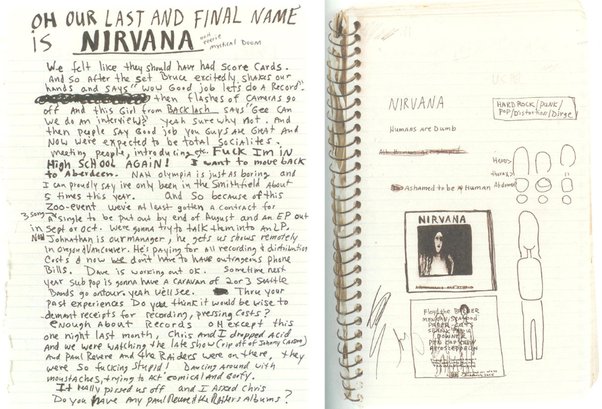 OH OUR LAST AND FINAL NAME
is NIRVANA
mystical Doom
We felt like they should have had score cards.
And so after the set Bruce excitedly shakes our
hands and says "wow Good job lets do a Record".
then flashes of Cameras go
off And this Girl from Backlash says "Gee Can
we do an interview? yeah sure why not. And
then people say Good job you Guys are Great And
NOW were expected to be total socialites.
meeting people, introducing etc. Fuck Im in
High SCHOOL AGAIN! I want to move back
to Aberdeen. NAH olympia is just as boring and
I can proudly say ive only been in the Smithfield about
5 times this year. And so because of this
zoo-event weve At least gotten a contract for
3 song
a single to be put out by end of August and an EP out
in Sept or oct. Were gonna try to talk them into an LP.
Now Johnathan is our manager, he gets us shows remotely
in oregon & Vancouver. He's paying for all recording & distribution
costs & now we dont have to have outrageous phone
Bills. Dave is working out ok. Sometime next
year Sub pop is gonna have a caravan of 2 or 3 Seattle
Bands go on tour. yeah we'll see. Thru your
past experiences Do you think it would be wise to
demand receipts for recording, pressing costs?
enough About Records OH except this
one night last month, Chris and I dropped acid
and we were watching the late show (rip off of Johnny Carson)
and Paul Revere and the Raiders were on there. they
were so fucking stupid! Dancing around with
moustaches, trying to act comical and Goofy.
It really pissed us off and I Asked Chris
Do you have Any Paul Revere & the Raiders Albums?
NIRVANA
HARD ROCK/PUNK/
POP/Distortion/Dirge
Humans are Dumb
Heads
thorax
Abdomen
Ashamed to be A Human
NIRVANA
Floyd the BARBER
PAPER CUTS
SPANK THRU
DOWNER
PEN CAP CHEW
AEROZEPPELIN